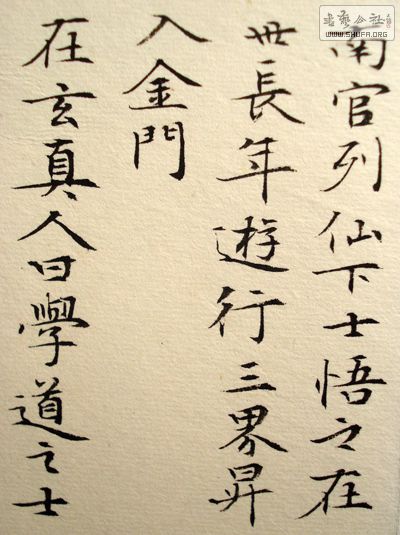 書藝公社
WWW.SHUFA.ORG
南官列仙下士悟之在
世長年遊行三界昇
入金門
在玄真人曰學道之士